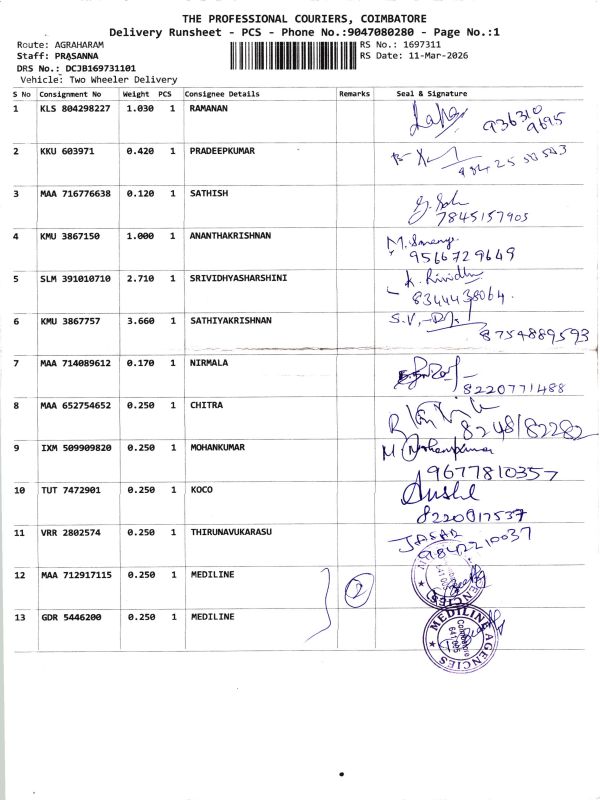 THE PROFESSIONAL COURIERS, COIMBATORE
Delivery Runsheet - PCS - Phone No.:9047080280 - Page No.:1
Route: AGRAHARAM RS No.: 1697311
Staff: PRASANNA RS Date: 11-Mar-2026
DRS No.: DCJB169731101
Vehicle: Two Wheeler Delivery
S No Consignment No Weight PCS Consignee Details Remarks Seal & Signature
1 KLS 804298227 1.030 1 RAMANAN
936310
9695
2 KKU 603971 0.420 1 PRADEEPKUMAR
3 MAA 716776638 0.120 1 SATHISH
7845157905
4 KMU 3867150 1.000 1 ANANTHAKRISHNAN
9566729649
5 SLM 391010710 2.710 1 SRIVIDHYASHARSHINI
8344438064.
6 KMU 3867757 3.660 1 SATHIYAKRISHNAN
8754889593
7 MAA 714089612 0.170 1 NIRMALA
8220771488
8 MAA 652754652 0.250 1 CHITRA
8248182282
9 IXM 509909820 0.250 1 MOHANKUMAR
9677810357
10 TUT 7472901 0.250 1 KOCO
8220017537
11 VRR 2802574 0.250 1 THIRUNAVUKARASU
9842210037
12 MAA 712917115 0.250 1 MEDILINE 2
13 GDR 5446200 0.250 1 MEDILINE
MEDILINE AGENCIES
Coimbatore
641 005